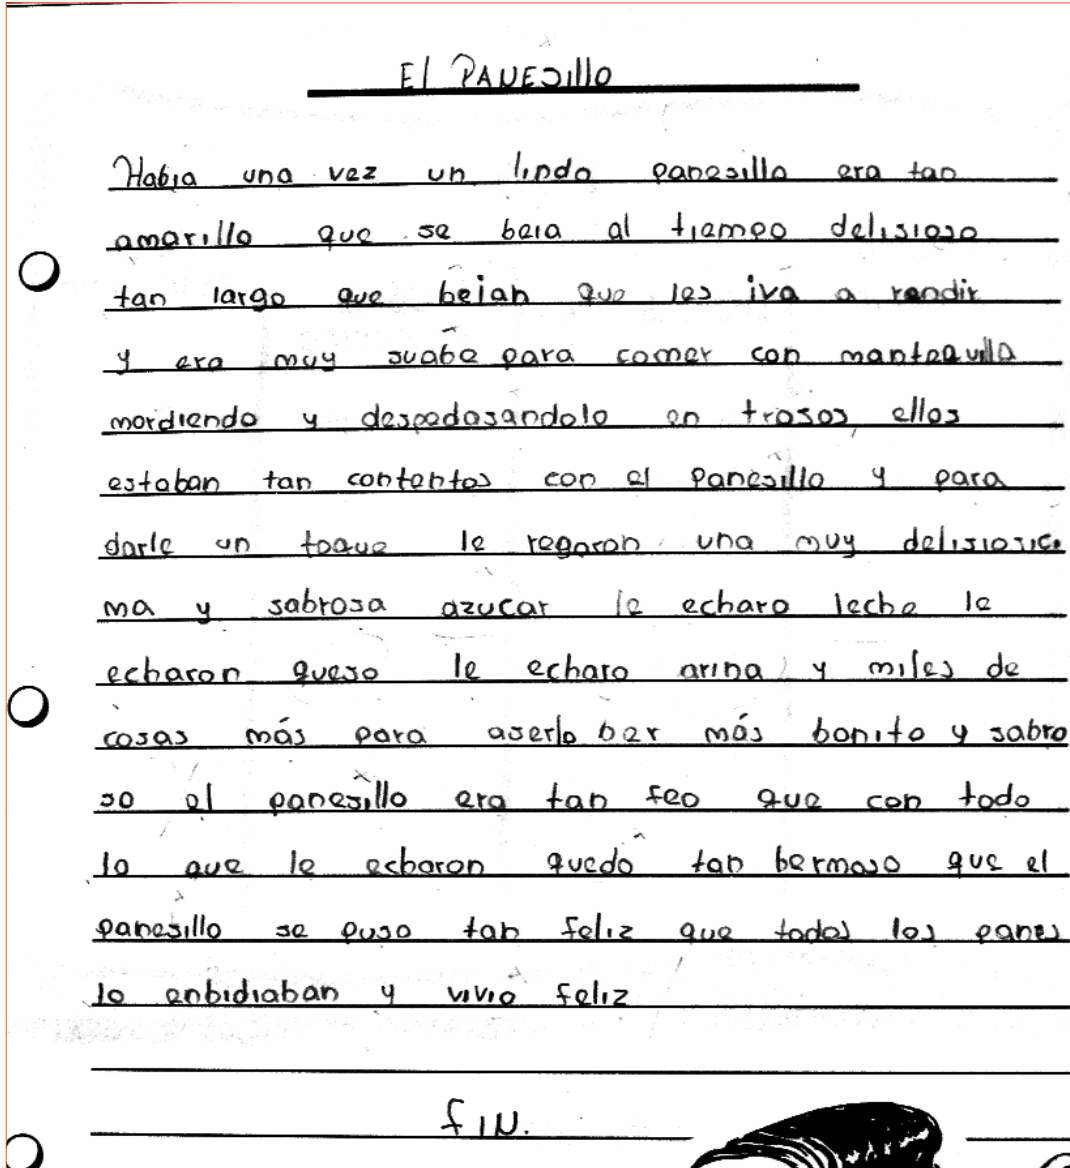 El PANESillo
Habia una vez un lindo panesillo era tan
amarillo que se beia al tiempo delisioso
tan largo que beian que les iva a rendir
y era muy suabe para comer con mantequilla
mordiendo y despedasandolo en trosos, ellos
estaban tan contentos con el panesillo y para
darle un toque le regaron una muy delisiosici
ma y sabrosa azucar le echaro leche le
echaron queso le echaro arina y miles de
cosas más para aserlo ber más bonito y sabro
so el panesillo era tan feo que con todo
lo que le echaron quedo tan hermoso que el
panesillo se puso tan feliz que todos los panes
lo enbidiaban y vivio feliz
fIN.